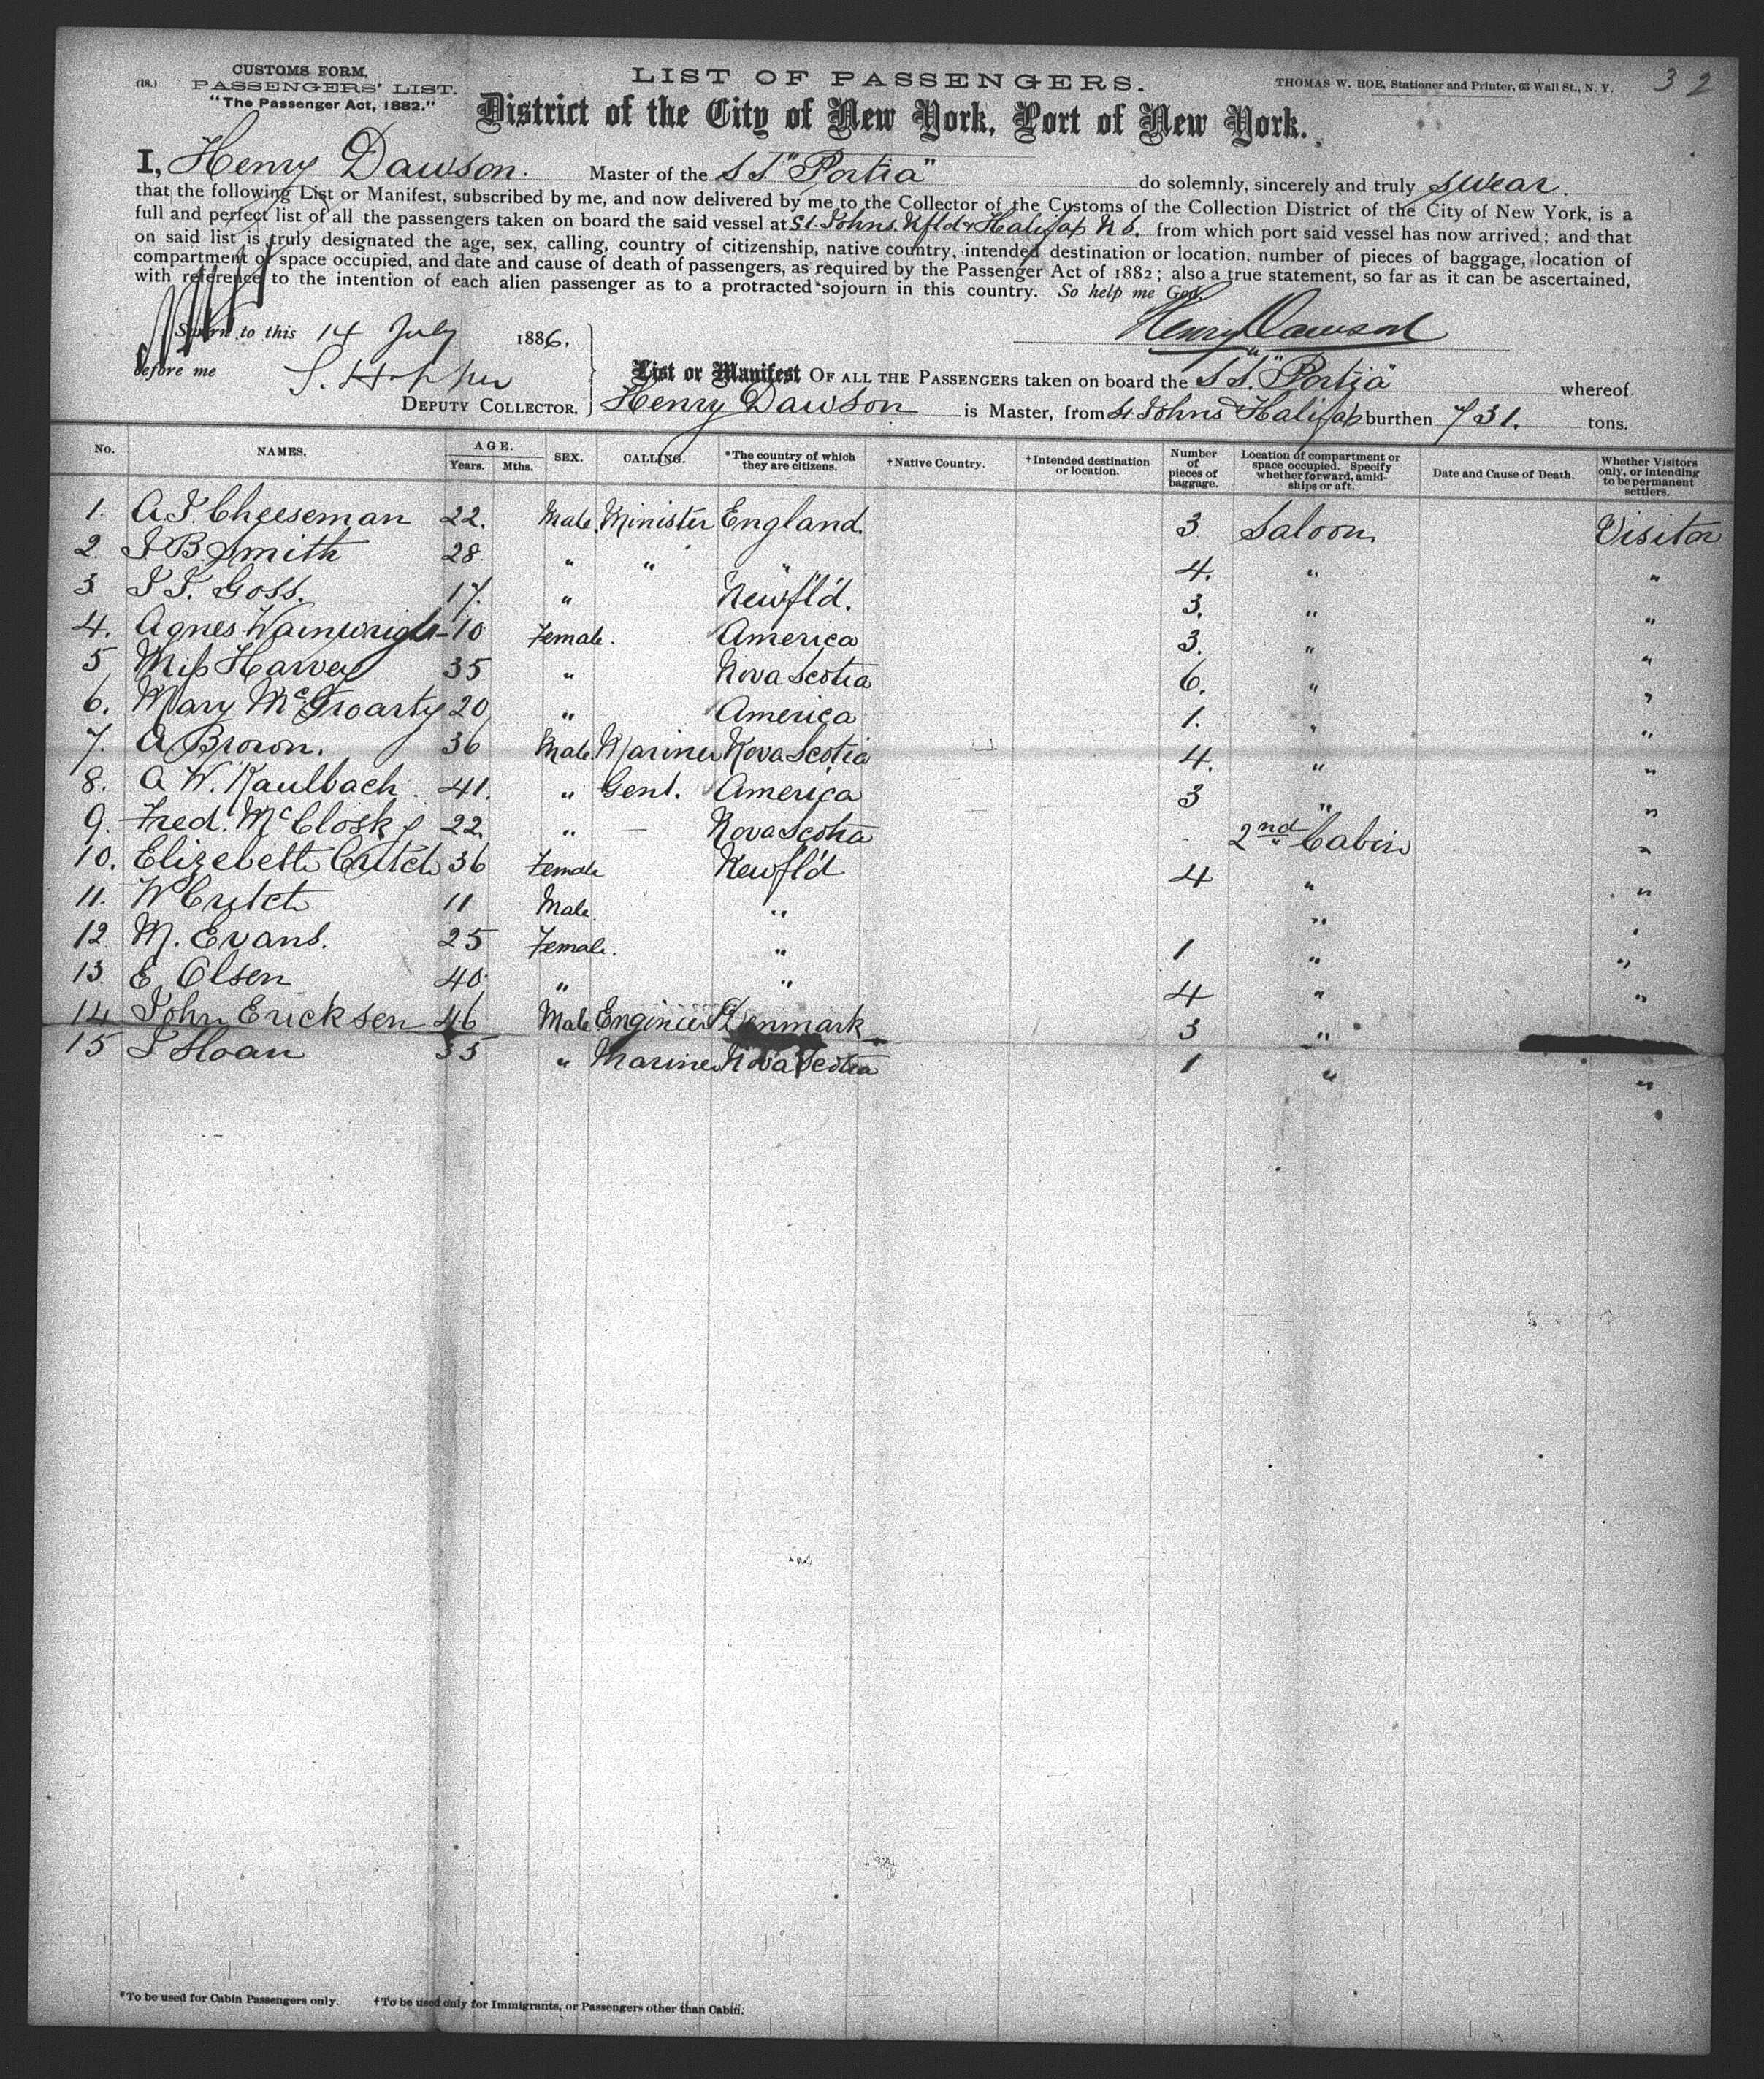 3 2
(18.)
CUSTOMS FORM,
PASSENGERS' LIST.
"The Passenger Act, 1882."
LIST OF PASSENGERS.
THOMAS W. ROE, Stationer and Printer, 63 Wall St., N. Y.
District of the City of New York, Port of New York.
I, Henry Dawson. Master of the SS "Portia" do solemnly, sincerely and truly swear.
that the following List or Manifest, subscribed by me, and now delivered by me to the Collector of the Customs of the Collection District of the City of New York, is a
full and perfect list of all the passengers taken on board the said vessel at St. Johns. Nfld & Halifax N S. from which port said vessel has now arrived; and that
on said list is truly designated the age, sex, calling, country of citizenship, native country, intended destination or location, number of pieces of baggage, location of
compartment or space occupied, and date and cause of death of passengers, as required by the Passenger Act of 1882; also a true statement, so far as it can be ascertained,
with reference to the intention of each alien passenger as to a protracted sojourn in this country. So help me God.
Henry Dawson
Sworn to this 14 July 1886.
before me
DEPUTY COLLECTOR.
List or Manifest OF ALL THE PASSENGERS taken on board the S S. "Portia" whereof
Henry Dawson is Master, from St Johns & Halifax burthen 731. tons.
No. NAMES. AGE. Years. Mths. SEX. CALLING. *The country of which they are citizens. †Native Country. †Intended destination or location. Number of pieces of baggage. Location of compartment or space occupied. Specify whether forward, amidships or aft. Date and Cause of Death. Whether Visitors only, or intending to be permanent settlers.
1. A. J. Cheeseman 22. Male. Minister England. 3 Saloon. Visitor
2. J B. Smith 28. " " " 4. " "
3 J. J. Goss. 17. " Newf'l'd. 3. " "
4. Agnes Wainwright 10 Female. America 3. " "
5 Miss Harvey 35 " Nova Scotia 6. " "
6. Mary McGroarty 20 " America 1. " "
7. A Brown. 36 Male. Mariner Nova Scotia 4. " "
8. A W. Kaulbach. 41. " Gent. America 3 " "
9. Fred. McClosky 22. " — Nova Scotia - 2nd Cabin "
10. Elizebeth Crutch 36 Female Newf'l'd 4 " "
11. W Crutch 11 Male. " " "
12 M. Evans. 25 Female. " 1 " "
13. E. Olsen 40. " " 4 " "
14 John Ericksen 46 Male Engineer Denmark 3 "
15 J Sloan 35 " Mariner Nova Scotia 1 " "
*To be used for Cabin Passengers only. †To be used only for Immigrants, or Passengers other than Cabin.